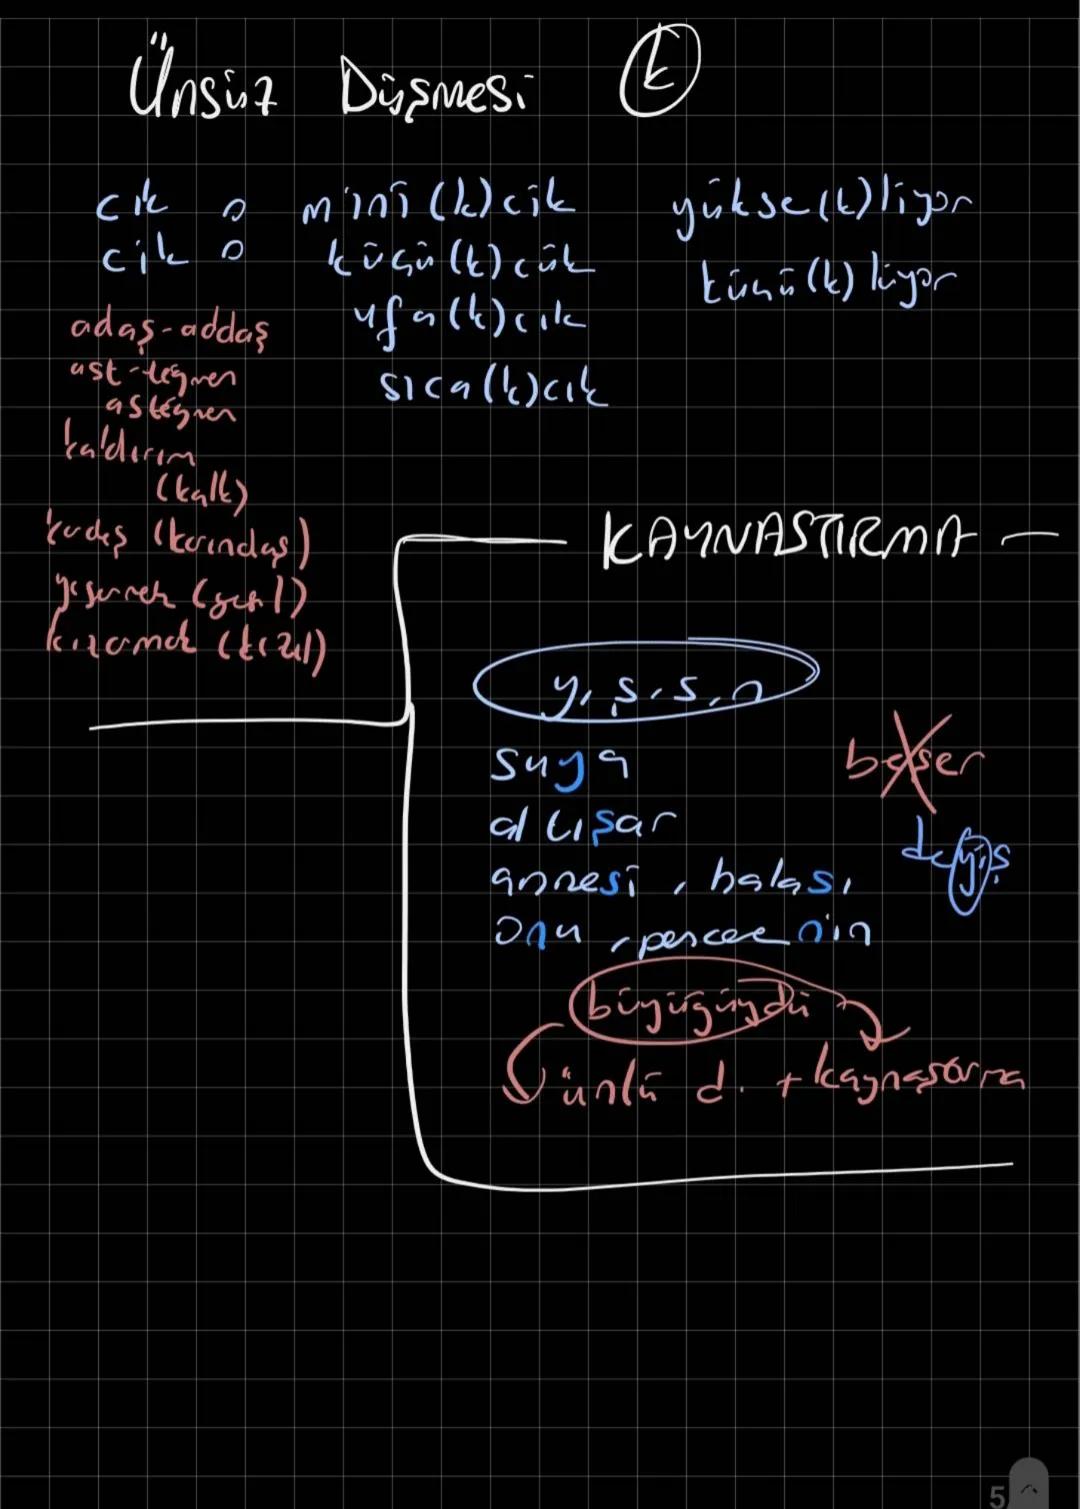 Ünsüz Düşmesi (k)
cık : mini(k)cik yükse(k)liyor
cik : küçü(k)cük küçü(k)lüyor
ufa(k)cık
sıca(k)cık
adaş-addaş
ast-teğmen
asteğmen
kaldırım
(kalk)
kardeş (karındaş)
yeşermek (yeşil)
kızarmak (kızıl)
KAYNAŞTIRMA
y, ş, s, n
suya
altışar
beşer
deyiş
annesi, halası
onu, pencerenin
büyüğüydü
ünlü d. + kaynaştırma
5